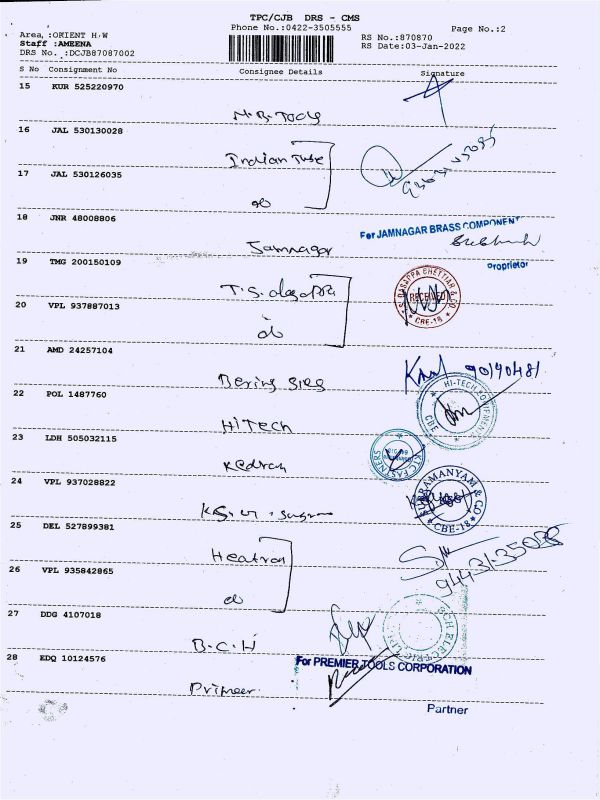 TPC/CJB DRS - CMS
Phone No.:0422-3505555
Page No.:2
Area, :ORIENT H W
RS No.:870870
Staff :AMEENA
RS Date:03-Jan-2022
DRS No. :DCJB87087002
S No Consignment No Consignee Details Signature
15 KUR 525220970
M.B. Tools
16 JAL 530130028
Indian Tube
17 JAL 530126035
do
18 JNR 48008806
Jamnagar
For JAMNAGAR BRASS COMPONENT
Proprietor
19 TMG 200150109
T.S. dasappa
S. DASAPPA CHETTIAR & CO
RECEIVED
CBE-18
20 VPL 937887013
do
21 AMD 24257104
Bering
22 POL 1487760
HiTech
HI-TECH
CBE
23 LDH 505032115
KTC FASTENERS
24 VPL 937028822
SUBRAMANYAM & CO
CBE-18
25 DEL 527899381
Heatron
26 VPL 935842865
do
27 DDG 4107018
B.C.H
BCH ELECTRIC
28 EDQ 10124576
Primeer
For PREMIER TOOLS CORPORATION
Partner